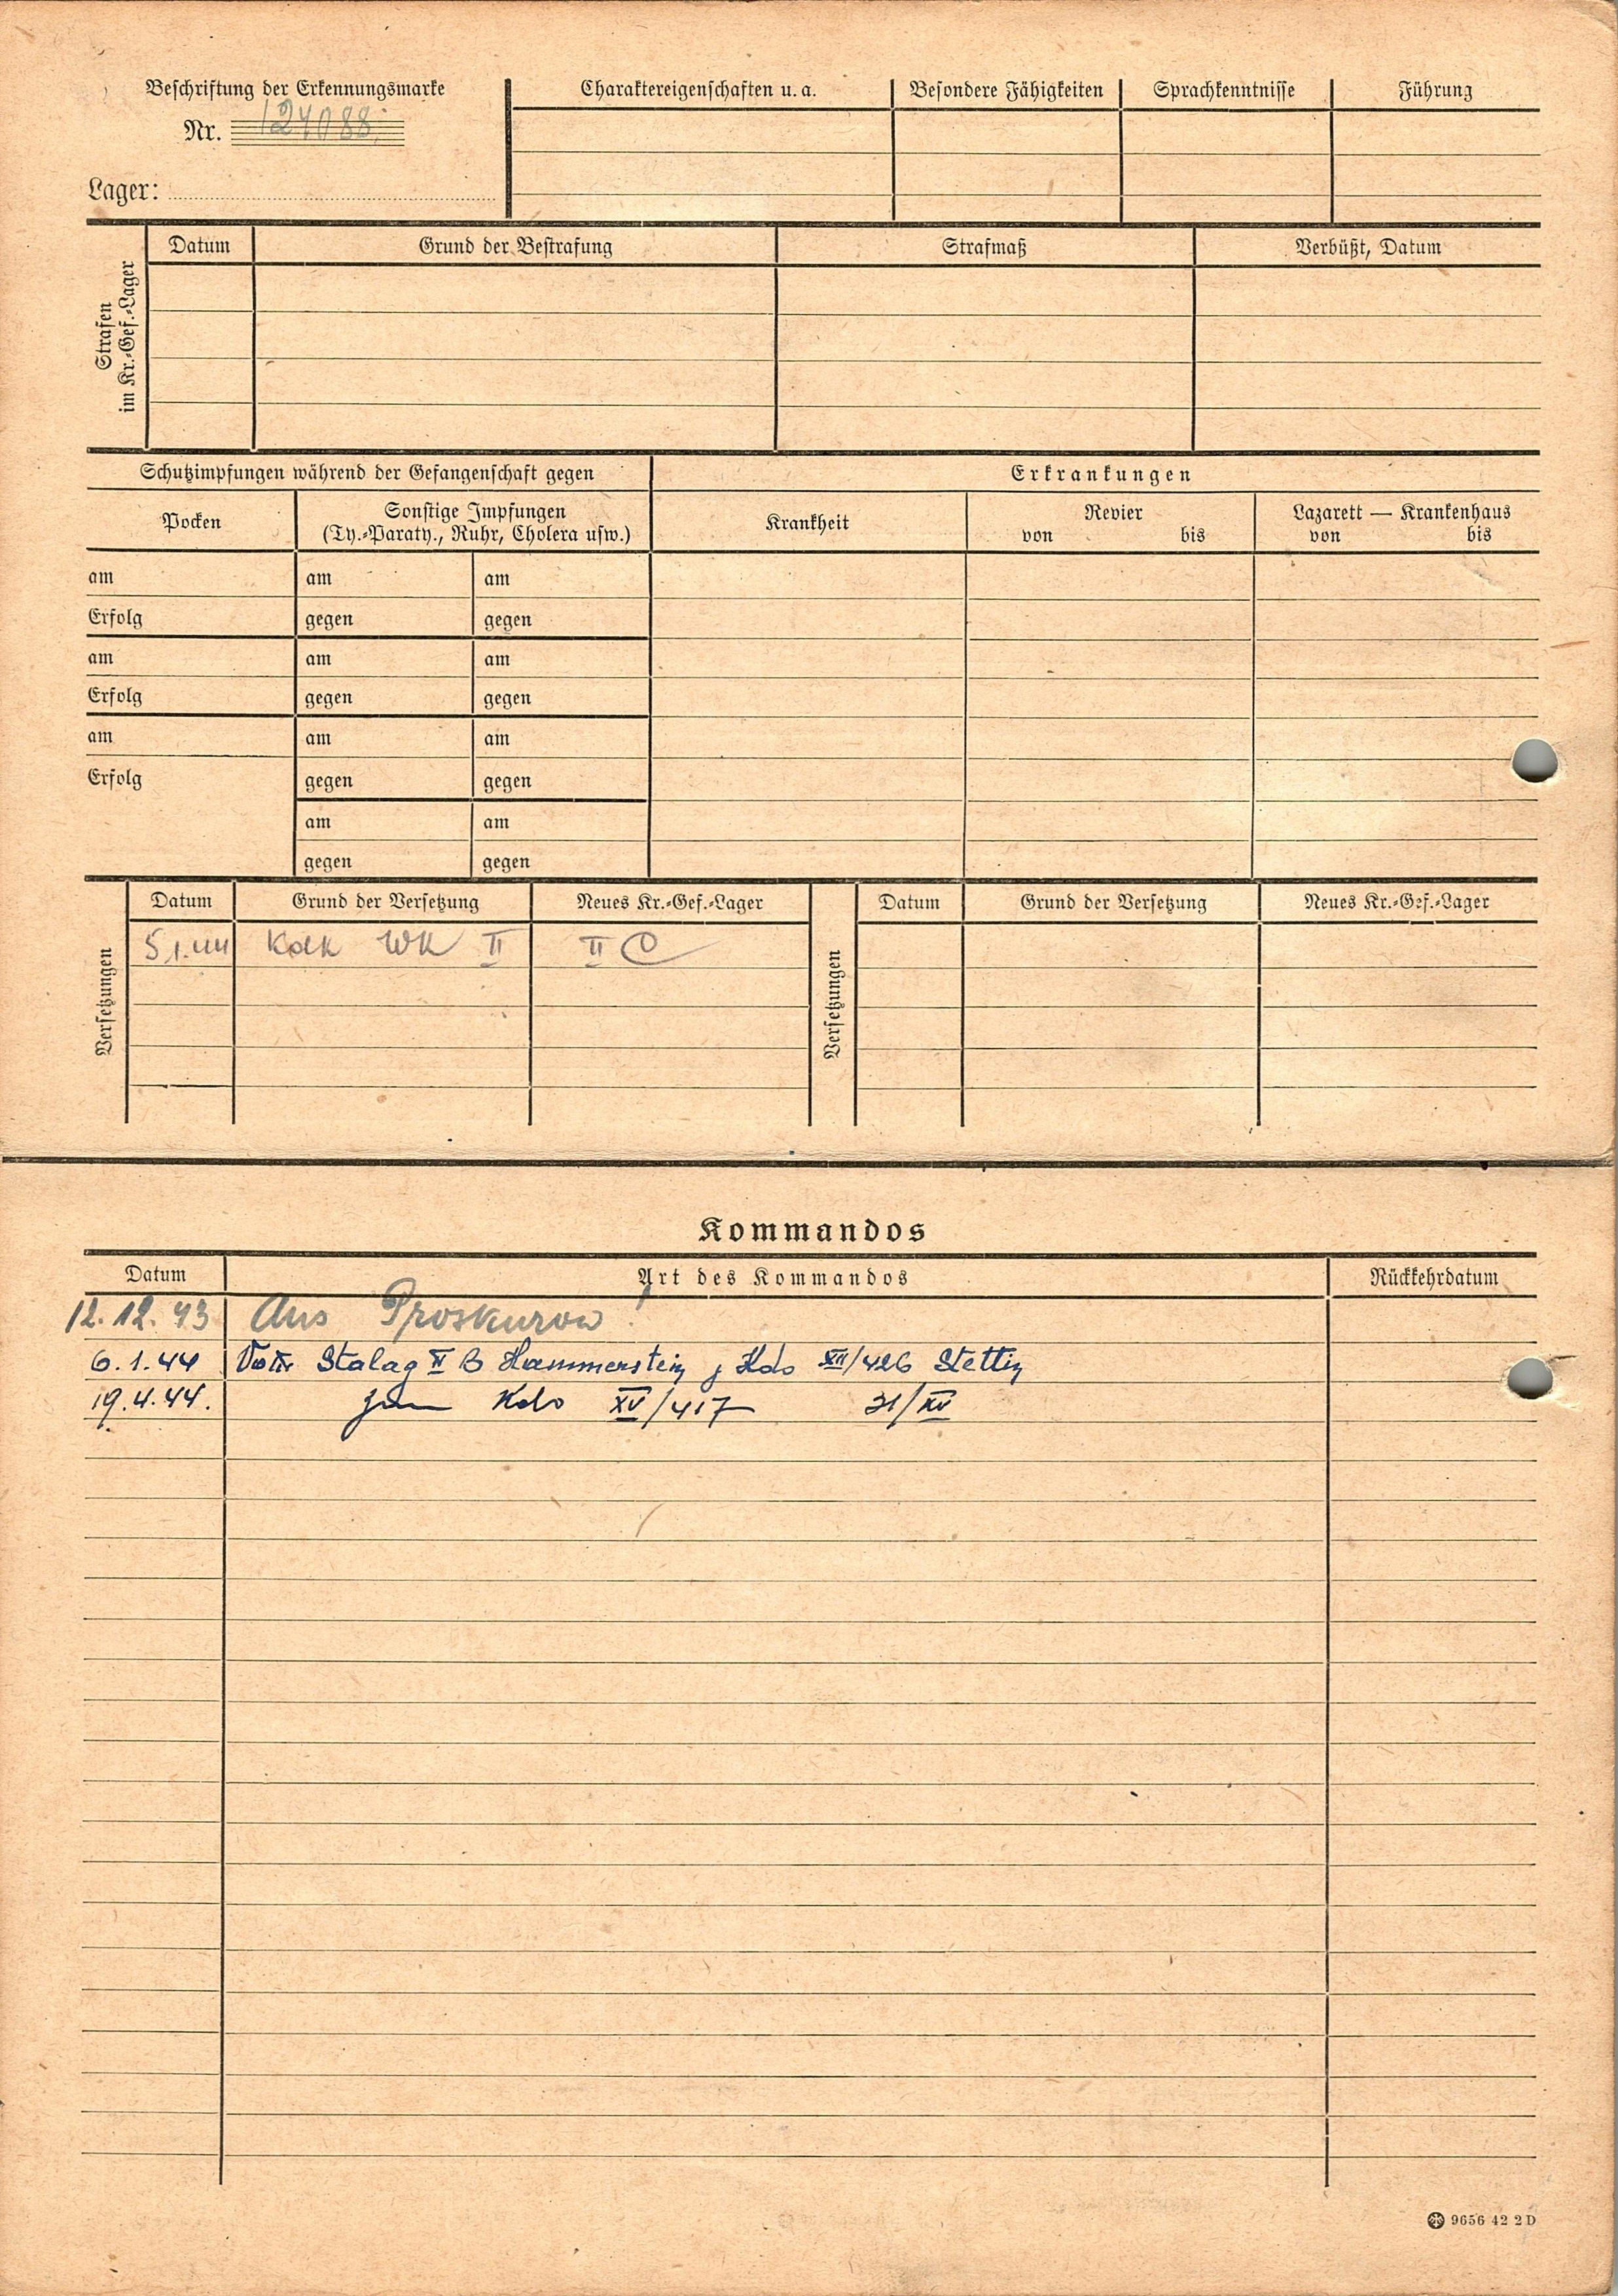 Beschriftung der Erkennungsmarke
Nr. 124088
Lager:
Charaktereigenschaften u. a.
Besondere Fähigkeiten
Sprachkenntnisse
Führung
Strafen
im Kr.-Gef.-Lager
Datum
Grund der Bestrafung
Strafmaß
Verbüßt, Datum
Schutzimpfungen während der Gefangenschaft gegen
Erkrankungen
Pocken
Sonstige Impfungen
(Ty.-Paraty., Ruhr, Cholera usw.)
Krankheit
Revier
von bis
Lazarett — Krankenhaus
von bis
am am am
Erfolg gegen gegen
am am am
Erfolg gegen gegen
am am am
Erfolg gegen gegen
am am
gegen gegen
Versetzungen
Datum Grund der Versetzung Neues Kr.-Gef.-Lager
5.1.44 WK II II
Versetzungen
Datum Grund der Versetzung Neues Kr.-Gef.-Lager
Kommandos
Datum Art des Kommandos Rückkehrdatum
12.12.43 Aus Proskurow !
6.1.44 Stalag II B Hammerstein Kdo XII/426 Stettin
19.4.44. Kdo XV/417 31/XV
9656 42 2 D